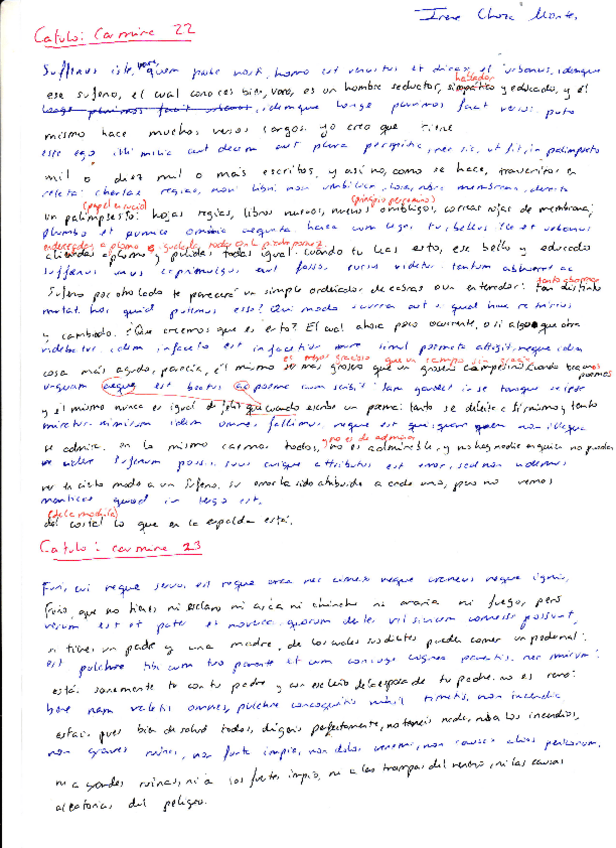 Irene Chova
Catulo: Carmine 22
Suffenus iste, Vare, quem probe nosti, homo est venustus et dicax, et urbanus, idemque
hablador
ese sufeno, el cual conoces bien, varo, es un hombre seductor, simpático y educado, y él
longe plurimos facit versus. puto
mismo hace muchos versos largos. yo creo que tiene
esse ego illi milia aut decem aut plura perscripta, nec sic, ut fit, in palimpsesto
mil o diez mil o más escritos, y así no, como se hace, transcritos en
relata: chartae regiae, novi libri, novi umbilici, lora, rubra membrana, derecta
(papel en sucio)
un palimpsesto: hojas regias, libros nuevos, nuevos ombligos, correas rojas de membrana,
plumbo et pumice omnia aequata. haec cum legas tu, bellus ille et urbanus
alineadas a plomo y pulidas todas igual. cuando tu leas esto, ese bello y educado
suffenus unus caprimulgus aut fossor rursus videtur. tantum abhorret ac
Sufeno por otro lado te parecerá un simple ordeñador de cabras o un enterrador: tan distinto
mutat. hoc quid putemus esse? Qui modo scurra aut si quid hac re
y cambiado. ¿Que creemos que es esto? El cual ahora poco ocurrente, o si algo que otra
videbatur, idem infaceto est infacetior rure simul poemata attigit, neque idem
cosa más agudo, parecía, el mismo es más grosero que un grosero campesino cuando tocamos
poemas
umquam aeque est beatus ac poema cum scribit: tam gaudet in se tamque se ipse
y el mismo nunca es igual de feliz que cuando escribe un poema: tanto se deleita a si mismo y tanto
miratur. nimirum idem omnes fallimur, neque est quisquam quem non in aliqua
se admira. en lo mismo caemos todos, y no es admirable, y no hay nadie en quien no puedas
re videre Suffenum possis. suus cuique attributus est error, sed non videmus
ver en cierto modo a un Sufeno. su error ha sido atribuido a cada uno, pero no vemos
manticae quod in tergo est.
(de la mochila)
del costal lo que en la espalda está.
Catulo: carmine 23
Furi, cui neque servus est neque arca nec cimex neque araneus neque ignis,
Furio, que no tienes ni esclavo ni arca ni chinche ni araña ni fuego, pero
verum est et pater et noverca, quorum dentes vel silicem comesse possunt,
si tienes un padre y una madre, de los cuales sus dientes pueden comer un pedernal:
est pulchre tibi cum tuo parente et cum coniuge lignea parentis. nec mirum:
está sanamente tu con tu padre y con esa leño de la esposa de tu padre. no es raro:
bene nam valetis omnes, pulchre concoquitis, nihil timetis, non incendia
estais pues bien de salud todos, digeris perfectamente, no teneis nada, ni a los incendios,
non graves ruinas, non facta impia, non dolos veneni, non casus alios periculorum.
ni a grandes ruinas, ni a los fuertes impio, ni a las trampas del veneno, ni las causas
aleatorias del peligro.